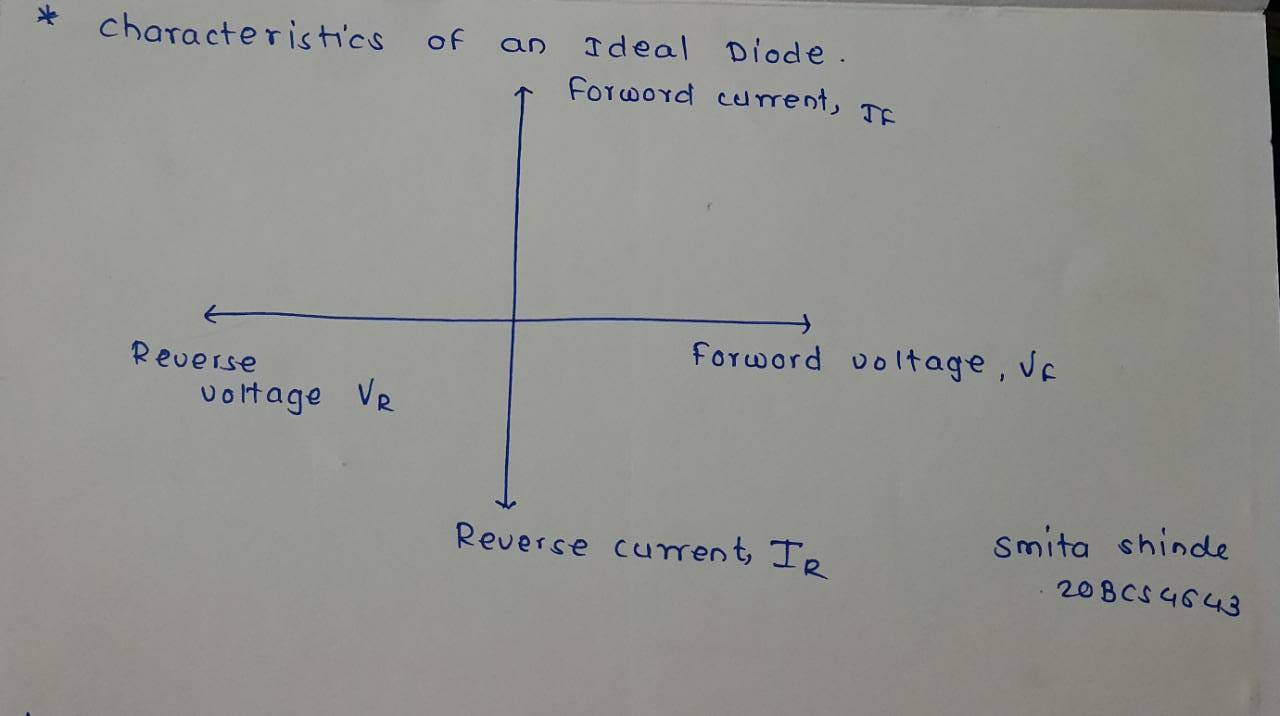 * Characteristics of an Ideal Diode.
Forword current, IF
Reverse
voltage VR
Forword voltage, VF
Reverse current, IR
Smita shinde
20BCS4643